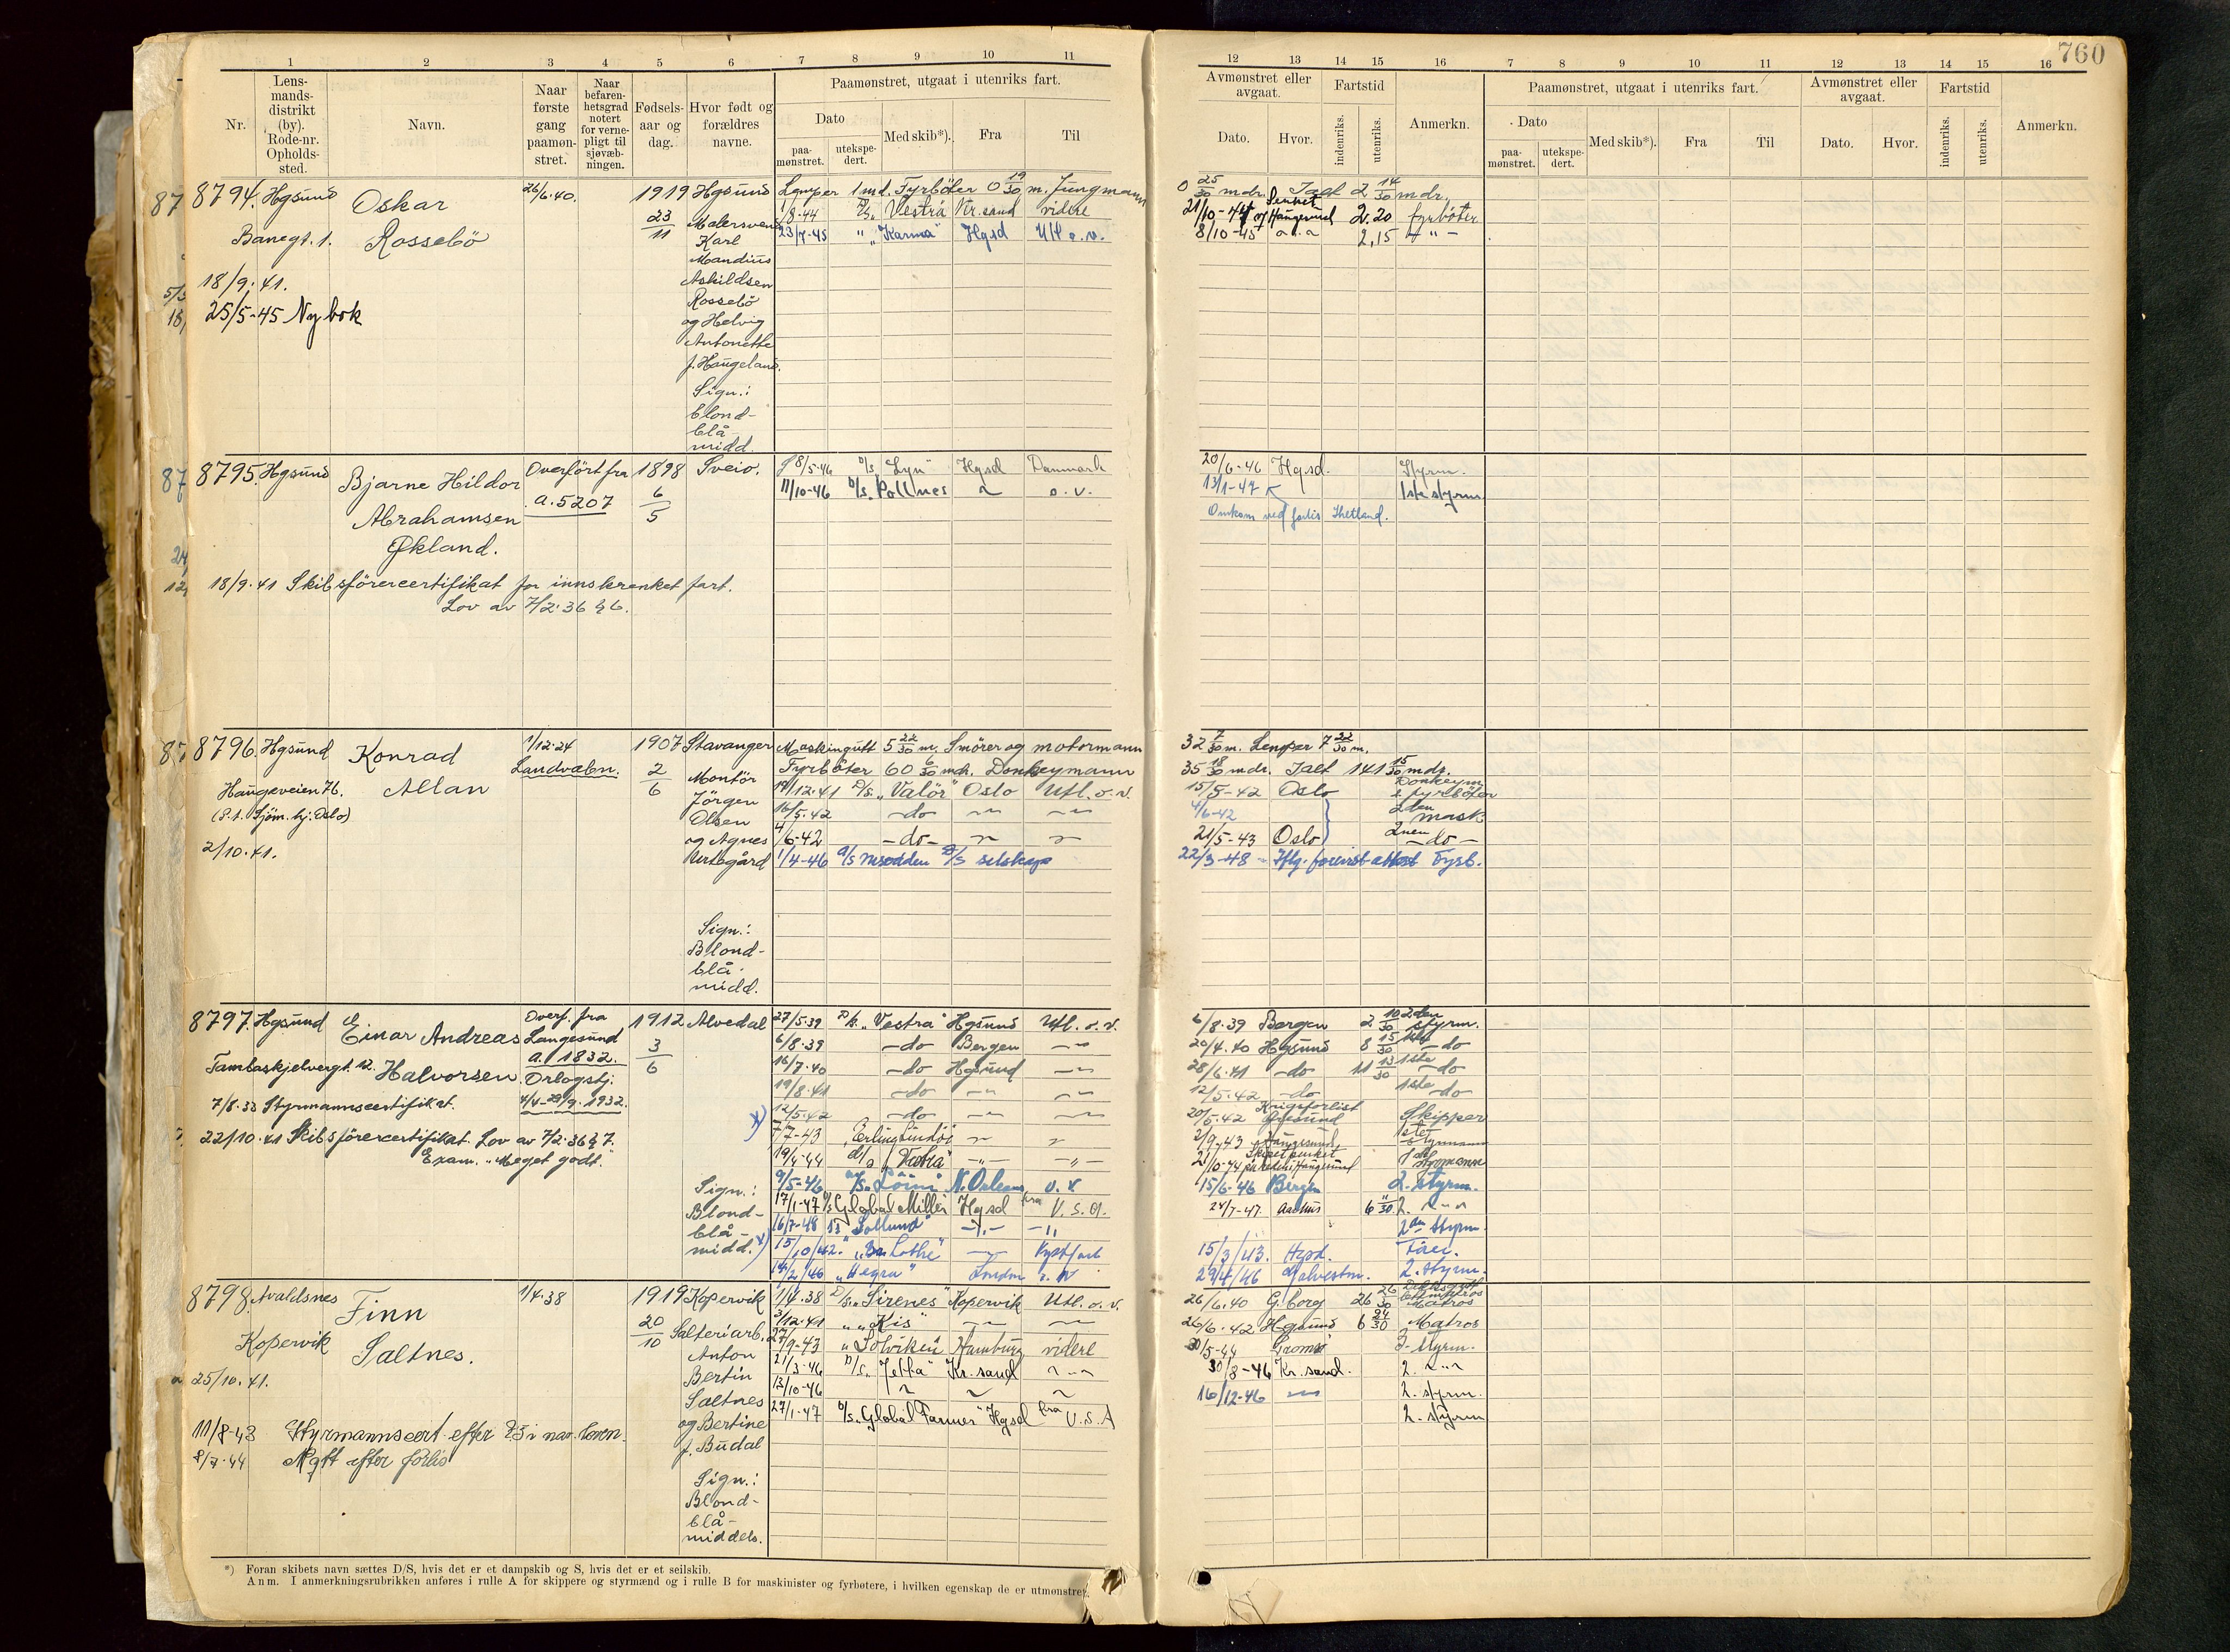 760
1 2 3 4 5 6 7 8 9 10 11
Nr.
Lens-
mands-
distrikt
(by).
Rode-nr.
Opholds-
sted.
Navn.
Naar
første
gang
paamøn-
stret.
Naar
befaren-
hetsgrad
notert
for verne-
pligt til
sjøvæb-
ningen.
Fødsels-
aar og
dag.
Hvor født og
forældres
navne.
Paamønstret, utgaat i utenriks fart.
Dato
paa-
mønstret.
utekspe-
dert.
Med skib*).
Fra
Til
12 13 14 15 16 7 8 9 10 11 12 13 14 15 16
Avmønstret eller
avgaat.
Dato.
Hvor.
Fartstid
indenriks.
utenriks.
Anmerkn.
Paamønstret, utgaat i utenriks fart.
Dato
paa-
mønstret.
utekspe-
dert.
Med skib*).
Fra
Til
Avmønstret eller
avgaat.
Dato.
Hvor.
Fartstid
indenriks.
utenriks.
Anmerkn.
8794. Hgsund Oskar 26/6.40. 1919 Hgsund
Banegt. 1. Rossebö 23/11
Karl
Mandius
Askildsen
Rossebö
og Helvig
Antonette
f. Haugeland.
Sign.:
blond-
blå-
midd.
18/9.41.
25/5-45 Ny bok
Lemper 1 md. Fyrböter 0 19/30 m. Jungmann
1/8-44 D/s. Vestra Kr.sand videre
23/7-45 " "Karma" Hgsd Utl o.v.
0 25/30 mdr. Ialt 2 14/30 mdr.
21/10-44 Senket v/ Haugesund 2.20 fyrböter
8/10-45 2,15 - " -
8795. Hgsund Bjarne Hildor Overfört fra 1898 Sveio.
Abrahamsen a. 5207 6/5
Økland.
18/9.41 Skibsförercertifikat for innskrenket fart.
Lov av 7/2.36 § 6.
8/5-46 D/s "Lyn" Hgsd Danmark
11/10-46 D/s. Pollnes ~ o.v.
20/6-46 Hgsd. Styrm.
13/1-47 1ste styrm.
Omkom ved forlis Shetland.
8796. Hgsund Konrad 1/12.24 1907 Stavanger
Haugeveien 76. Allan Landvalen. 2/6 Montör
Jörgen
Olsen
og Agnes
Sign.:
Blond-
blå-
midd.
2/10.41.
Maskingutt 5 22/30 m. Smörer og motormann
Fyrböter 60 6/30 mdr. Donkeymann
19/12.41 D/s. "Valör" Oslo Utl. o.v.
16/5.42 -do-
4/6-42 -do-
1/4-46 D/s selskap
32 7/30 m. Lemper 7 22/30 m.
35 18/30 mdr. Ialt 141 15/30 mdr.
15/5-42 Oslo Donkeym.
& fyrböter
4/6-42 2den mask
21/5-43 Oslo 2nen -do-
22/3-48
8797. Hgsund Einar Andreas Overf. fra 1912 Alvedal
Halvorsen. Langesund 3/6
a. 1832.
Orlogstj.
4/4-29/9.1932.
7/8.33 Styrmannscertifikat.
22/10.41 Skibsförercertifikat. Lov av 7/2.36 § 7.
Exam. "Meget godt."
Sign.:
Blond-
blå-
midd.
27/5.39 D/s. "Vestra" Hgsund Utl. o.v.
6/8.39 -do Bergen
16/7.40 -do Hgsund
19/8.41 -do
x) 12/5.42 -do
7/7-43 "Erling Lindöe"
19/4-44 d/s "Vestra" -"- -"-
9/5-46 N. Orleans
17/1-47 Global Miller Hgsd fra U.S.A.
16/7-48 -"- -"-
x) 15/10/42. Kystfart
14/2/46 "Hegra" London
6/8.39 Bergen 2 10/30 2den styrm.
20/4.40 Hgsund 8 15/30 -do
28/6.41 -do 11 13/30 1ste -do
12/5.42 -do 1ste -do
20/5.42 Krigsforlist Skipper
2/9-43 Haugesund, 1ste Styrmann
21/10-44 Skipet senket Styrmann
15/6-46 Bergen 2. styrm.
24/7-47. Aarhus 6 11/30 2.
2den styrm.
15/3/43. Hgsd.
29/4/46 Galveston. 2. styrm.
8798. Avaldsnes Finn 1/4.38 1919 Kopervik
Kopervik Saltnes. 20/10 Salteriarb.
Anton
Bertin
Saltnes
og Bertine
f. Budal
Sign.:
Blond-
blå-
middels.
25/10.41.
11/8-43 Styrmannscert. efter
8/7-44 Nytt efter forlis
1/4.38 D/s. "Sirenes" Kopervik Utl. o.v.
3/12.41 " "Kis"
27/9-43 "Solviken" Hamburg videre
21/3-46 D/s. "Jetta" Kr.sand
13/10-46
27/1-47 D/s. "Global Farmer" Hgsd fra U.S.A
26/6.40 G.borg 26 26/30 Dekksgutt
Matros
26/6.42 Hgsund 6 24/30 Matros
30/5-44 Tromsö 3. styrm.
30/8-46 Kr.sand. 2. ~"~
16/12-46 2. styrm.
2. styrm
*) Foran skibets navn sættes D/S, hvis det er et dampskib og S, hvis det er et seilskib.
Anm. I anmerkningsrubrikken anføres i rulle A for skippere og styrmænd og i rulle B for maskinister og fyrbøtere, i hvilken egenskap de er utmønstret.